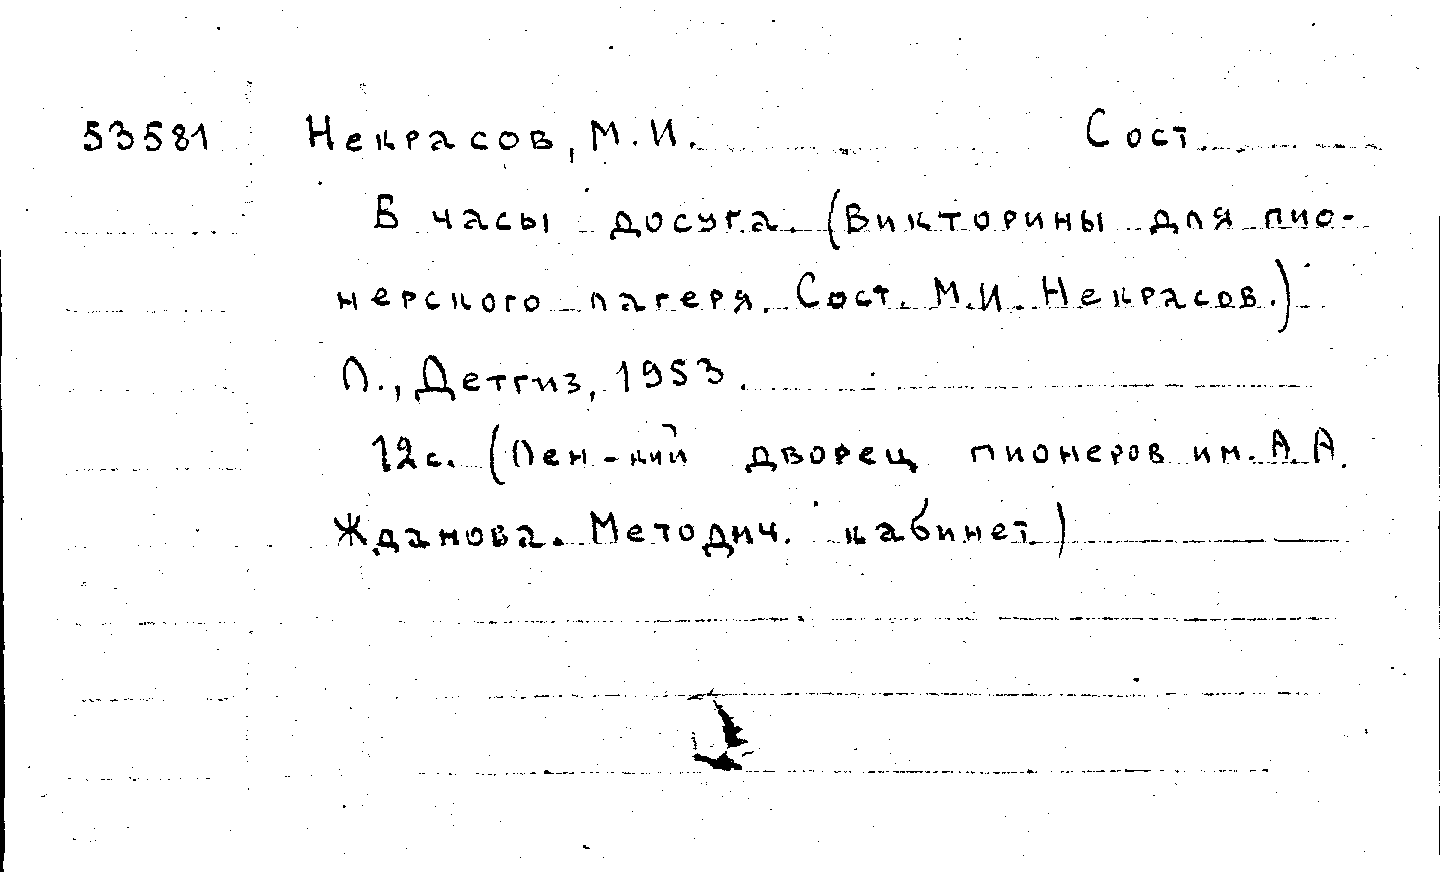 53581 Некрасов, М.И. Сост.
В часы досуга. (Викторины для пио-
нерского лагеря. Сост. М.И. Некрасов.)
Л., Детгиз, 1953.
12с. (Лен-кий дворец пионеров им. А.А.
Жданова. Методич. кабинет)